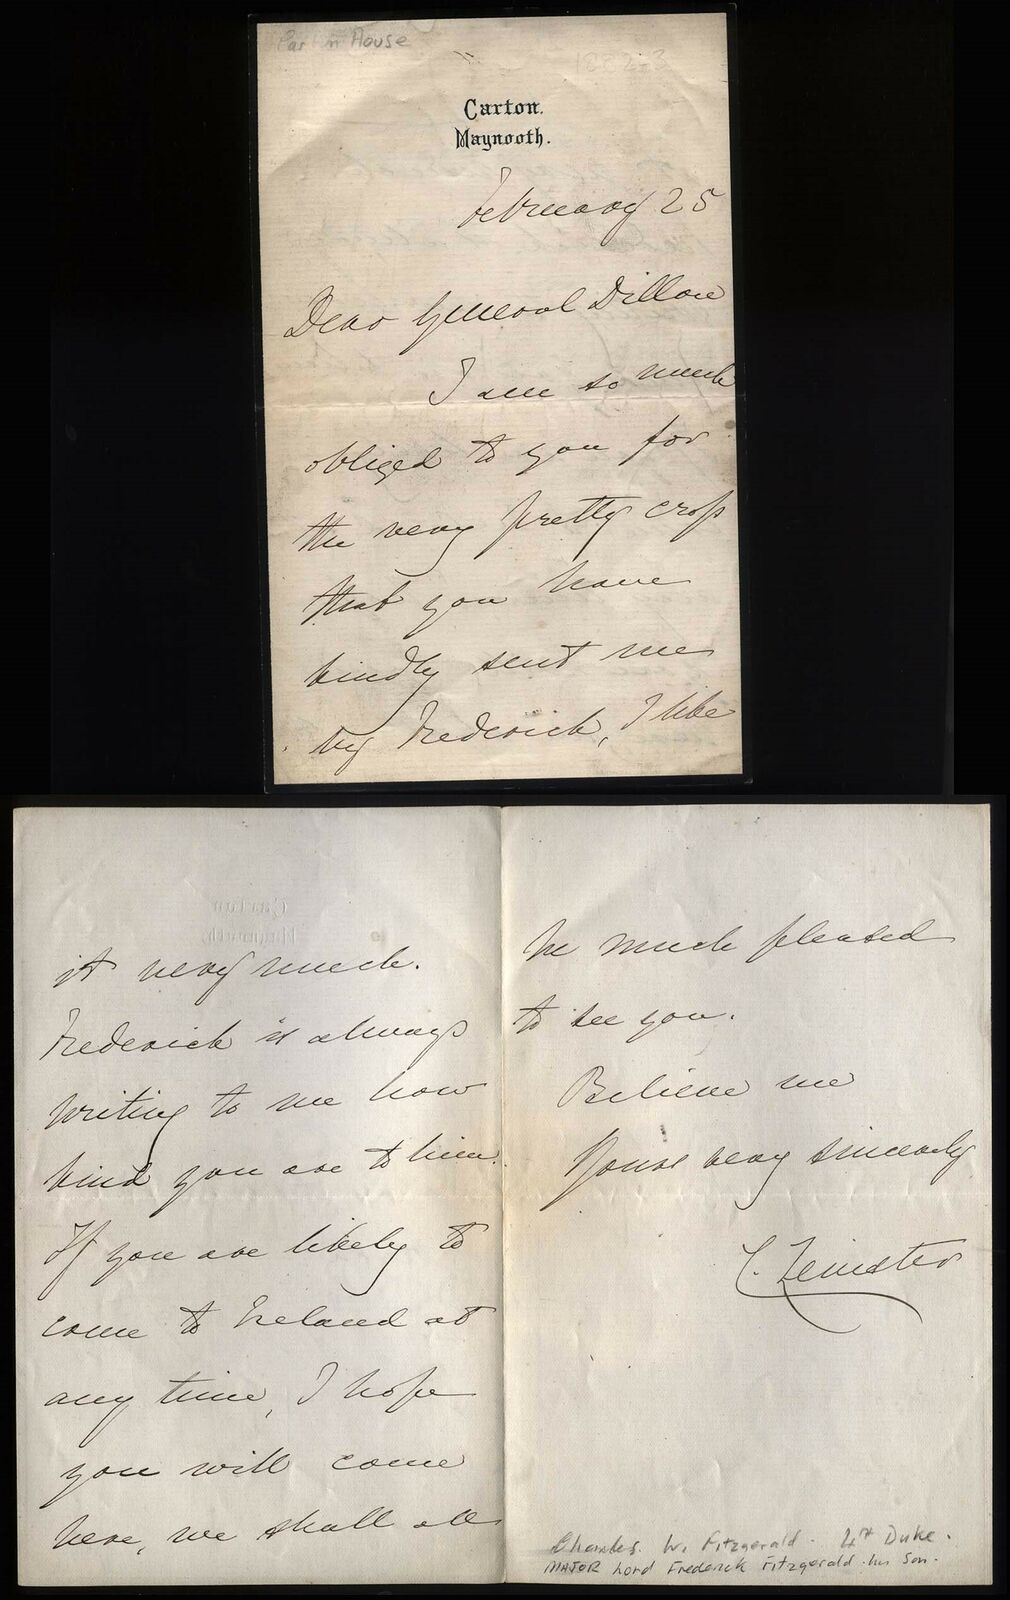 Carton House
1882-3
Carton.
Maynooth.
February 25
Dear General Dillon
I am so much
obliged to you for
the very pretty cross
that you have
kindly sent me
by Frederick, I like
it very much.
Frederick is always
writing to me how
kind you are to him.
If you are likely to
come to Ireland at
any time, I hope
you will come
here, we shall all
be much pleased
to see you.
Believe me
Yours very sincerely
C. Leinster
Charles. W. Fitzgerald. 4th Duke.
MAJOR Lord Frederick Fitzgerald his son.